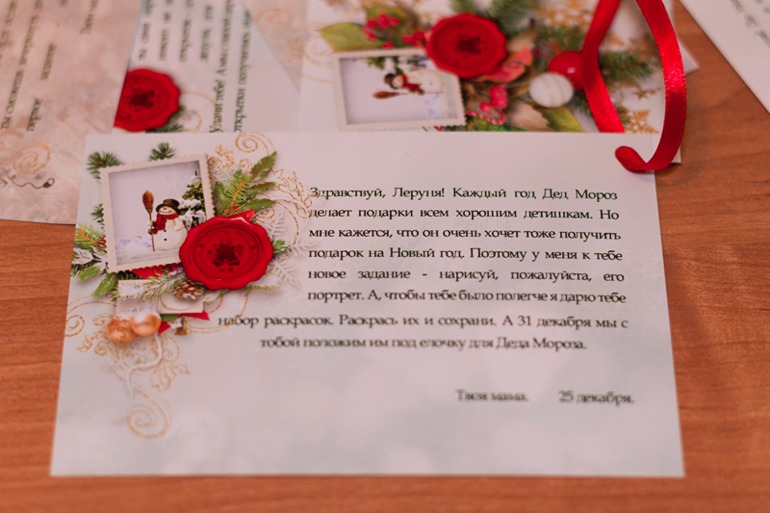 Здравствуй, Леруня! Каждый год Дед Мороз
делает подарки всем хорошим детишкам. Но
мне кажется, что он очень хочет тоже получить
подарок на Новый год. Поэтому у меня к тебе
новое задание - нарисуй, пожалуйста, его
портрет. А, чтобы тебе было полегче я дарю тебе
набор раскрасок. Раскрась их и сохрани. А 31 декабря мы с
тобой положим им под елочку для Деда Мороза.
Твоя мама. 25 декабря.